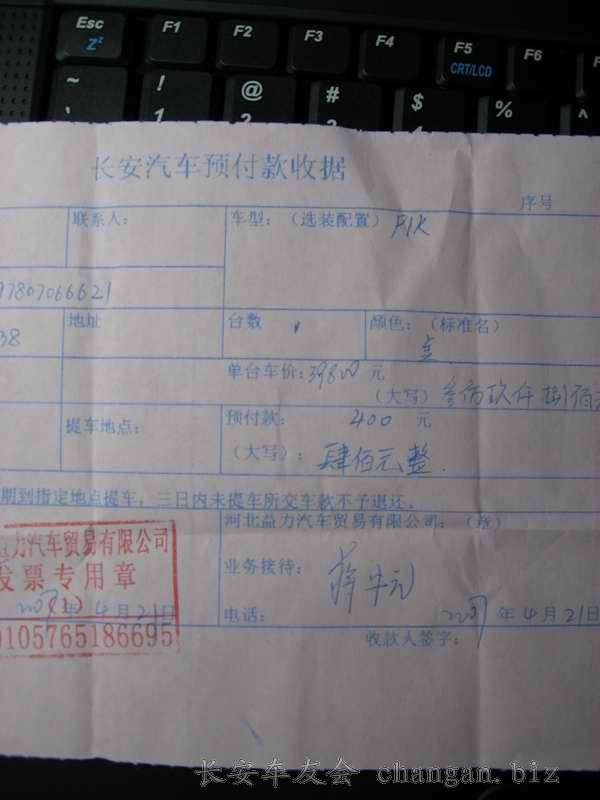 Esc F1 F2 F3 F4 F5 F6
Zz CRT/LCD
~ ! @ # $ %
` 1 2 3 4
长安汽车预付款收据
序号
联系人: 车型:(选装配置)
97807066621
38 地址 台数 颜色:(标准名)
单台车价: 39800 元
(大写)
提车地点: 预付款: 400 元
(大写): 肆佰元整.
期到指定地点提车,三日内未提车所交车款不予退还。
河北益力汽车贸易有限公司:(章)
益力汽车贸易有限公司
发票专用章
业务接待:
(1)
2007年4月21日
电话: 2007年4月21日
0105765186695
收款人签字:
长安车友会 changan.biz